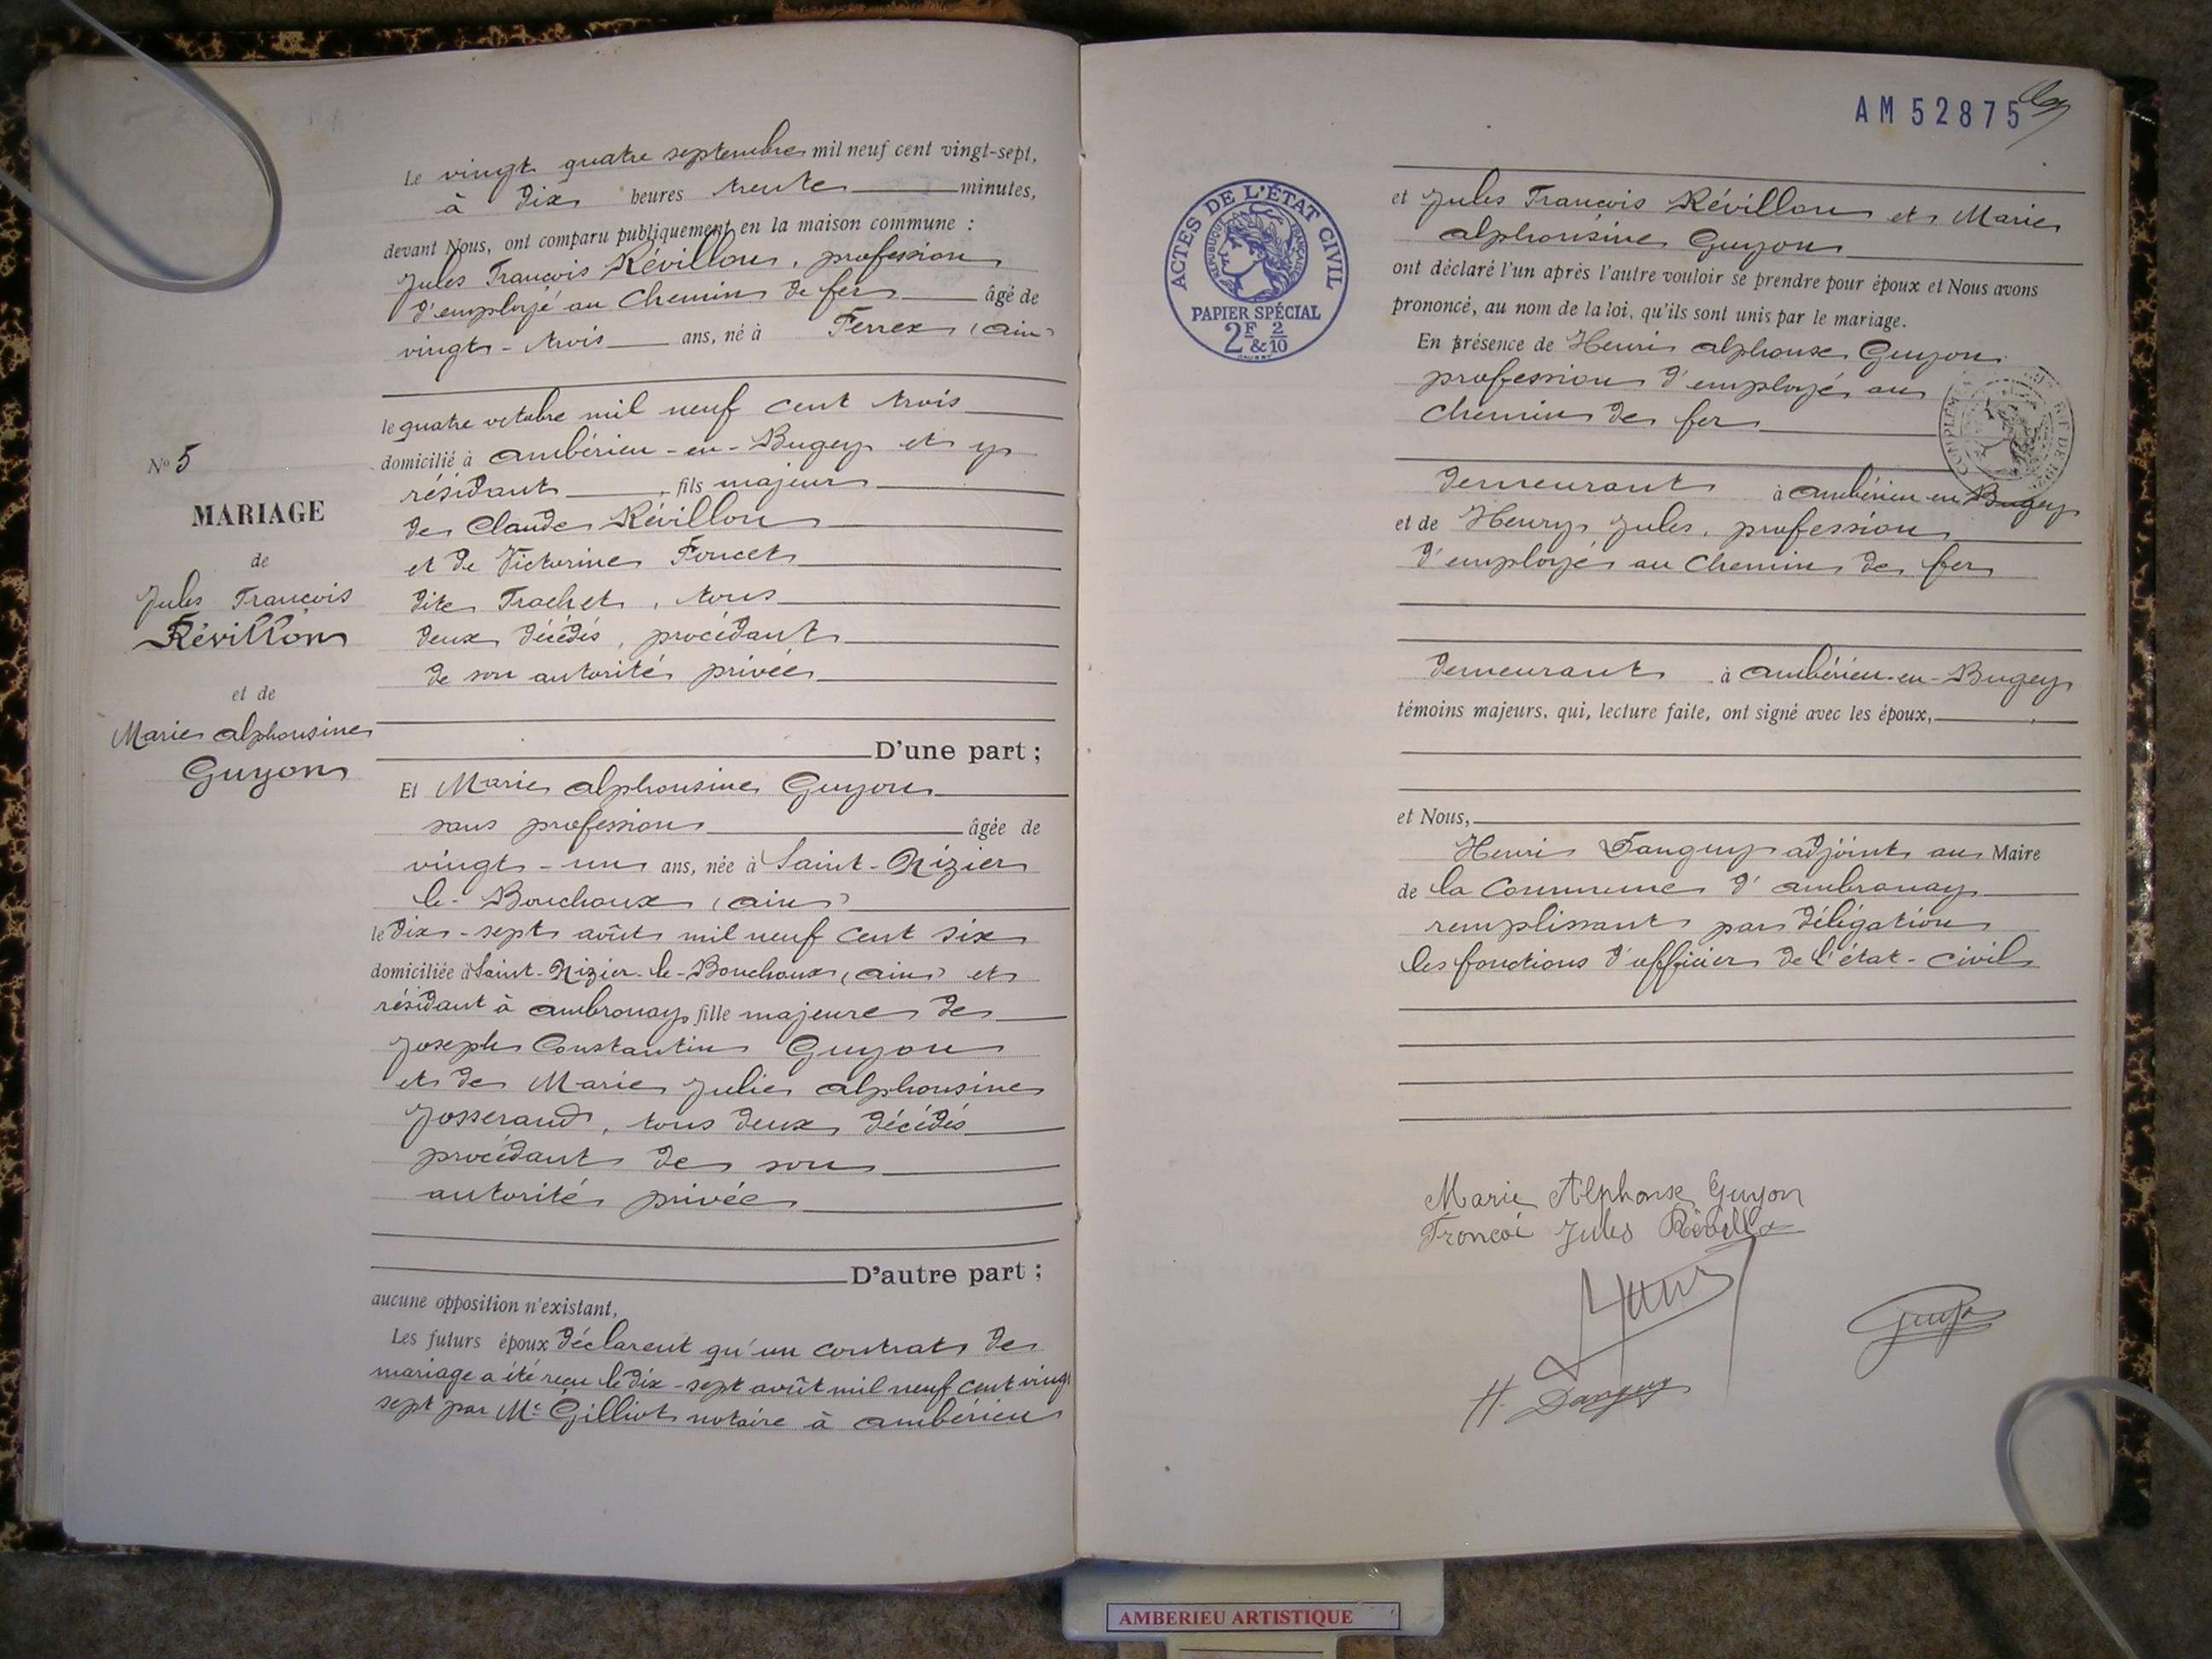 Le vingt quatre septembre mil neuf cent vingt-sept,
à dix heures trente minutes,
devant Nous, ont comparu publiquement en la maison commune :
Jules François Révillon, profession
d'employé au Chemin de fer âgé de
vingt-trois ans, né à Ferrex (ain)
le quatre octobre mil neuf cent trois
domicilié à ambérieu-en-Bugey et y
résidant, fils majeur
de Claude Révillon
et de Victorine Foncet
dite Trachet, tous
deux décédés, procédant
de son autorité privée
D'une part ;
Nº 5
MARIAGE
de
Jules François
Révillon
et de
Marie alphonsine
Guyon
Et Marie alphonsine Guyon
sans profession âgée de
vingt-un ans, née à Saint-Nizier
le-Bouchoux (ain)
le dix-sept août mil neuf cent six
domiciliée à Saint-Nizier-le-Bouchoux (ain) et
résidant à ambronay fille majeure de
Joseph Constantin Guyon
et de Marie Julie alphonsine
Josserand, tous deux décédés
procédant de son
autorité privée
D'autre part ;
aucune opposition n'existant,
Les futurs époux déclarent qu'un contrat de
mariage a été reçu le dix-sept août mil neuf cent vingt
sept par Me Gilliot notaire à ambérieu
AM 52875
ACTES DE L'ÉTAT CIVIL
RÉPUBLIQUE FRANÇAISE
PAPIER SPÉCIAL
2F & 2/10
et Jules François Révillon et Marie
alphonsine Guyon
ont déclaré l'un après l'autre vouloir se prendre pour époux et Nous avons
prononcé, au nom de la loi, qu'ils sont unis par le mariage.
En présence de Henri alphonse Guyon
profession d'employé au
chemin de fer
demeurant à ambérieu en Bugey
et de Henry Jules, profession
d'employé au Chemin de fer
demeurant à ambérieu-en-Bugey
témoins majeurs, qui, lecture faite, ont signé avec les époux,
et Nous,
Henri Danguy adjoint au Maire
de la Commune d'ambronay
remplissant par délégation
les fonctions d'officier de l'état-civil
Marie Alphonse Guyon
Troncoi Jules Révillo
H. Danguy
AMBERIEU ARTISTIQUE